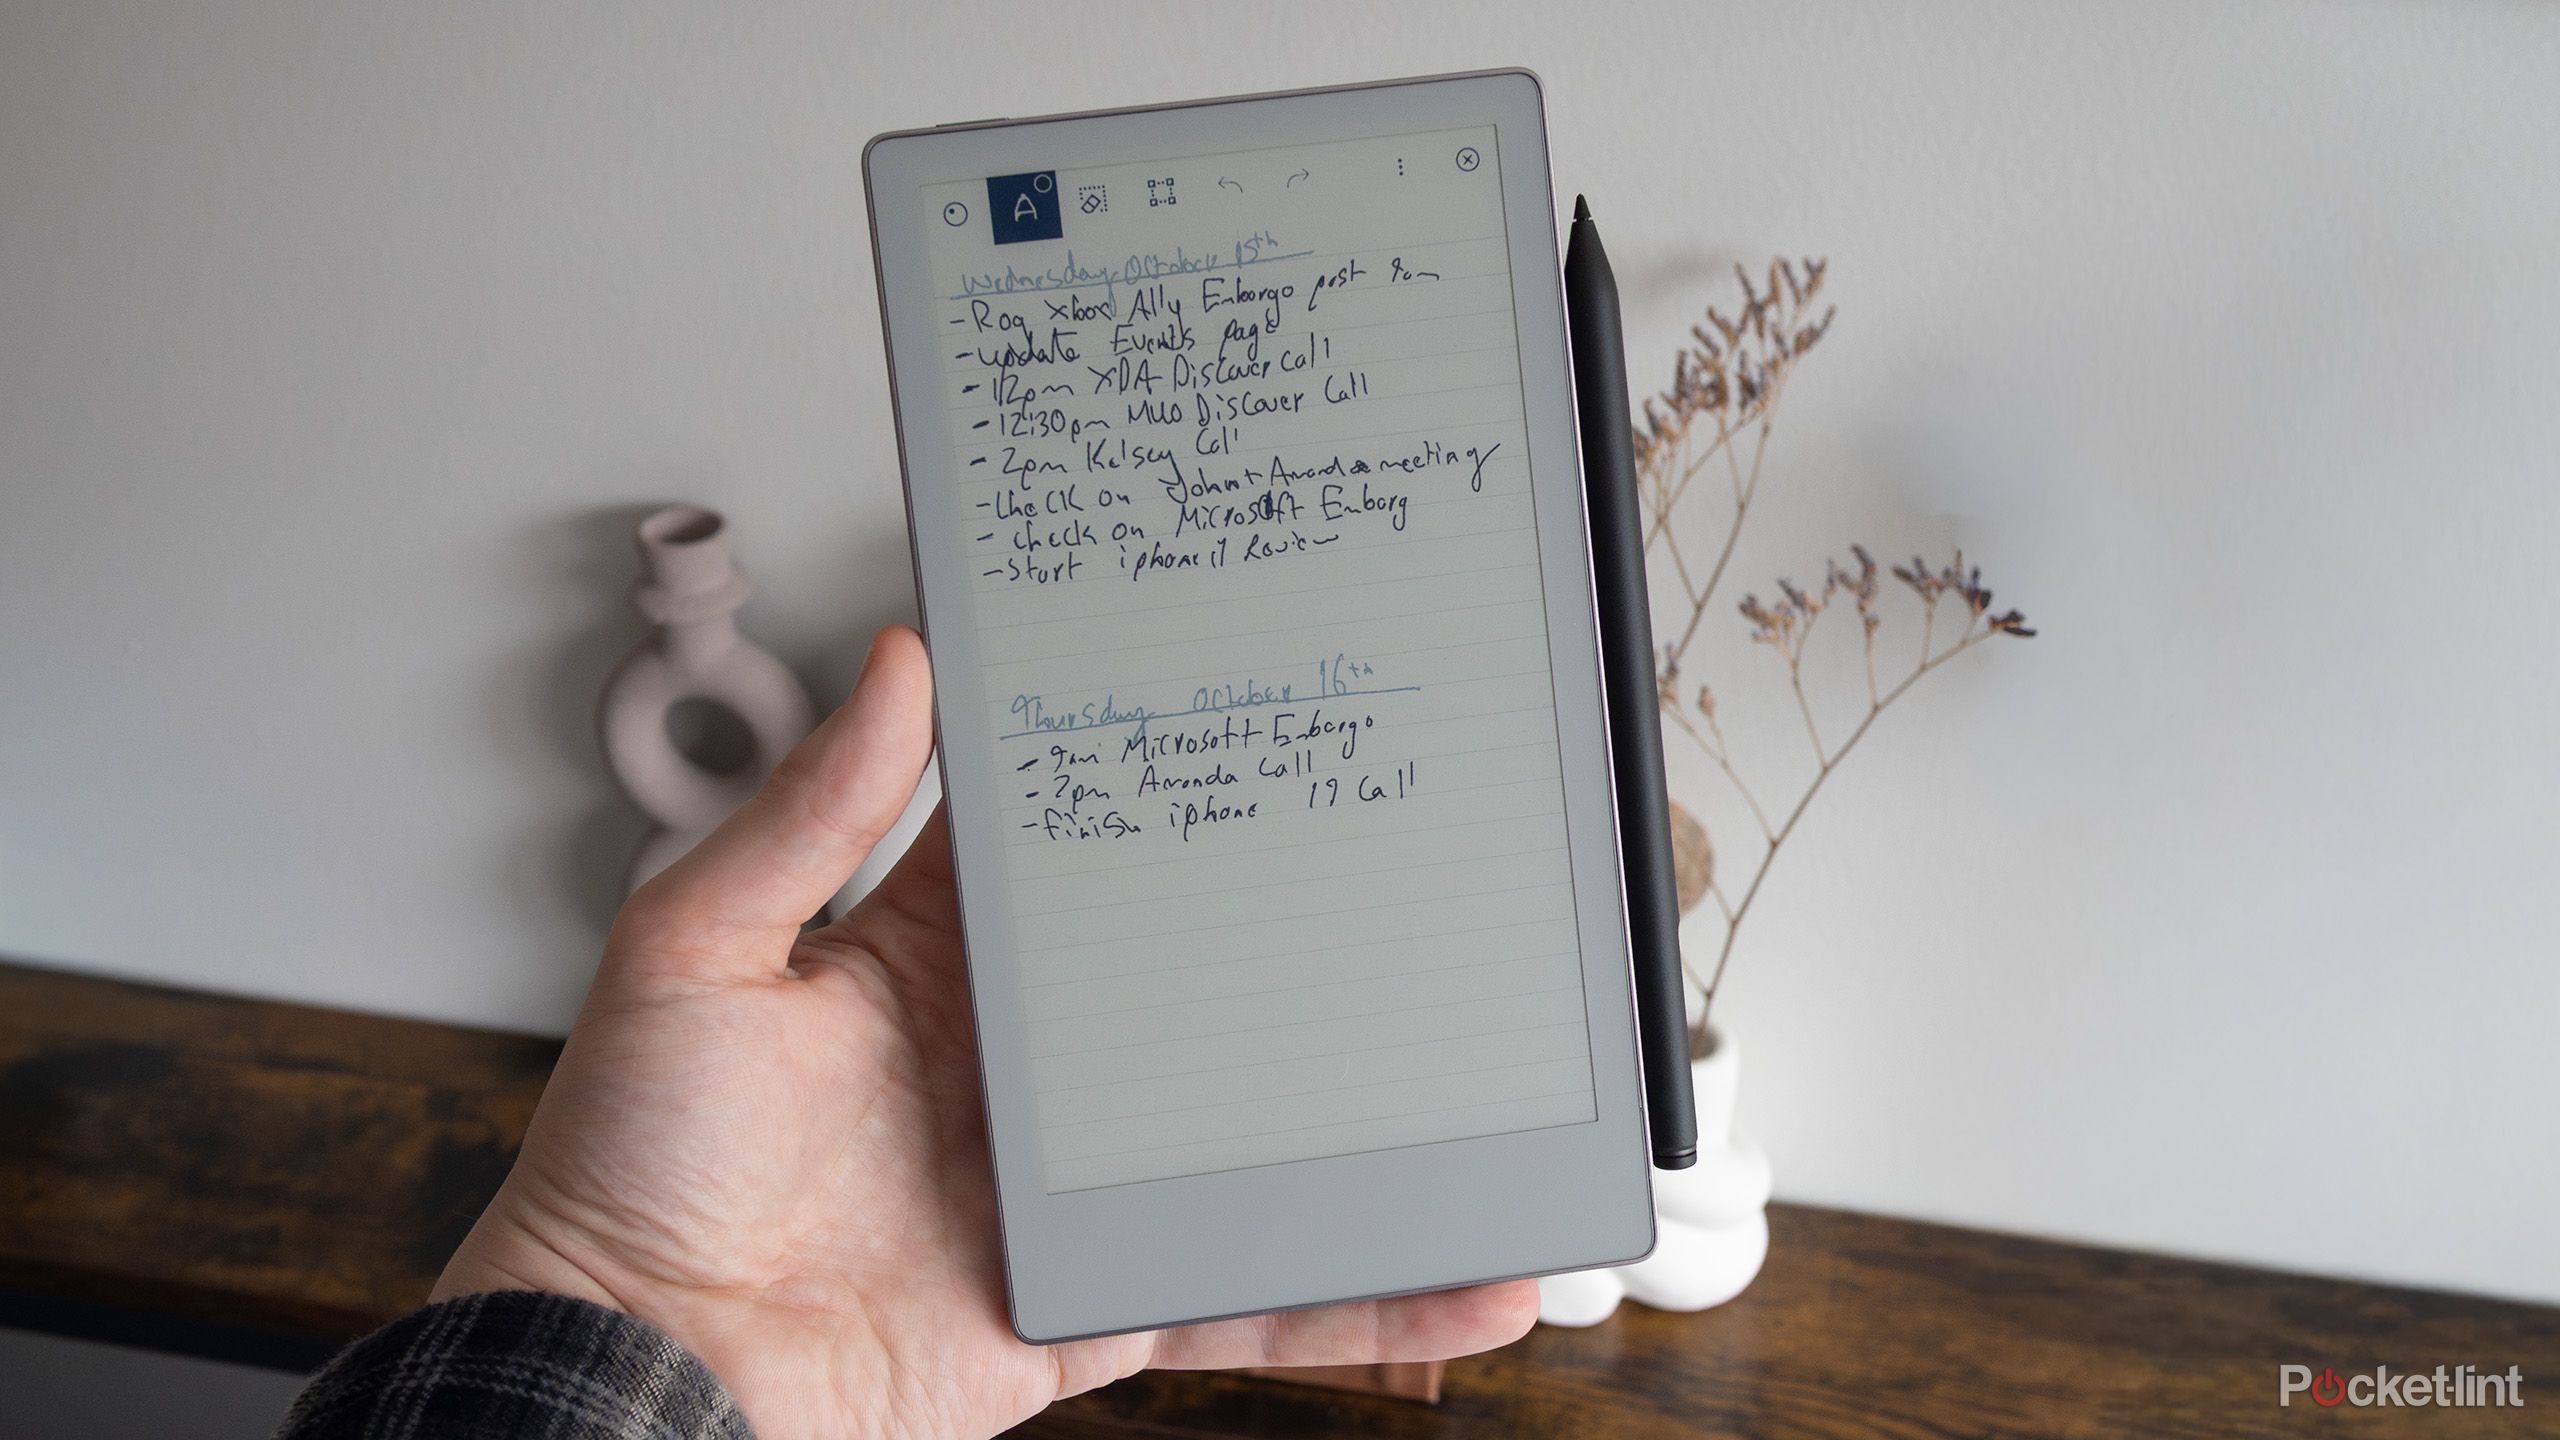 A
Wednesday October 15th
- Rog Xbox Ally Embargo post 9am
- update Events page
- 12pm XDA Discover call
- 12:30pm MUO Discover Call
- 2pm Kelsey Call
- Check on John + Amanda meeting
- check on Microsoft Embarg
- Start iphone 17 Review
Thursday October 16th
- 9am Microsoft Embargo
- 2pm Amanda Call
- finish iphone 17 Call
Pocket-lint